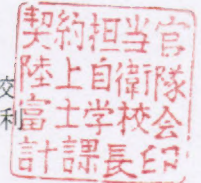 契約担当官
陸上自衛隊
富士学校会
計課長印
交
利